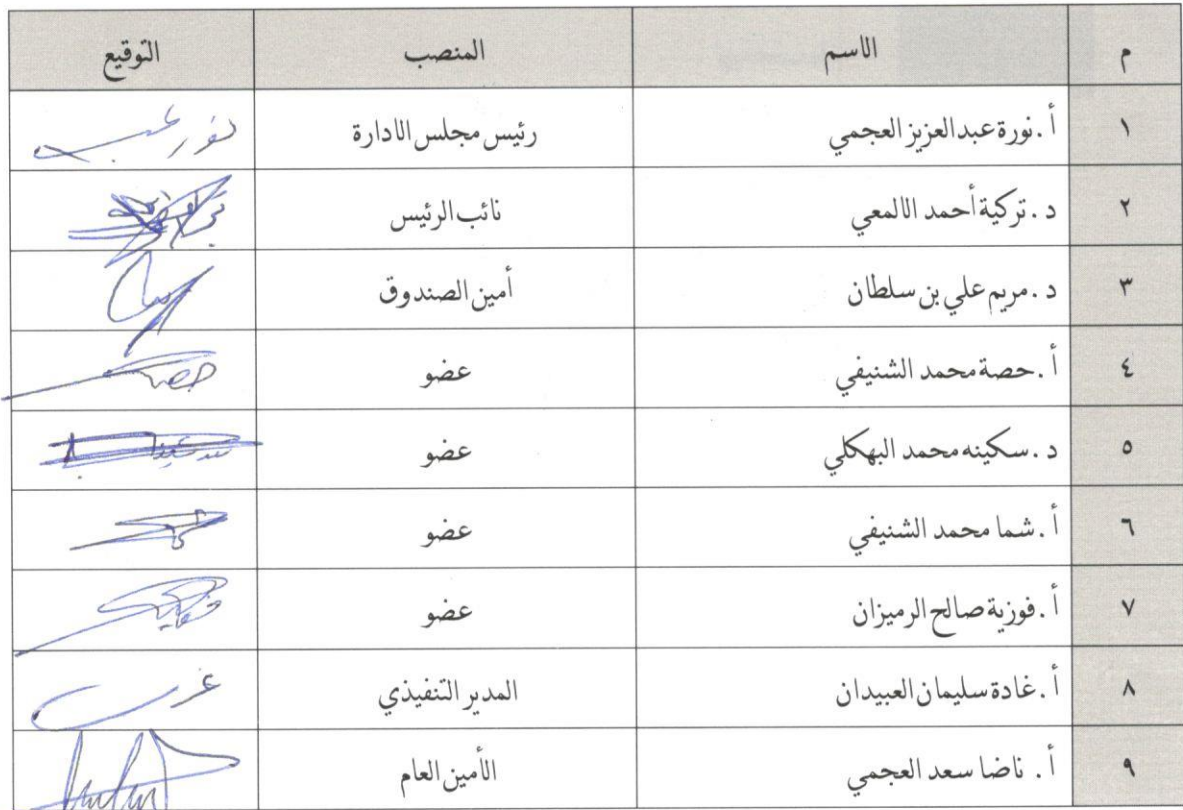 م الاسم المنصب التوقيع
١ أ.نورة عبدالعزيز العجمي رئيس مجلس الادارة
٢ د.تركية أحمد الالمعي نائب الرئيس
٣ د.مريم علي بن سلطان أمين الصندوق
٤ أ.حصة محمد الشنيفي عضو حصه
٥ د.سكينه محمد البهكلي عضو
٦ أ.شما محمد الشنيفي عضو
٧ أ.فوزية صالح الرميزان عضو
٨ أ.غادة سليمان العبيدان المدير التنفيذي
٩ أ. ناضا سعد العجمي الأمين العام